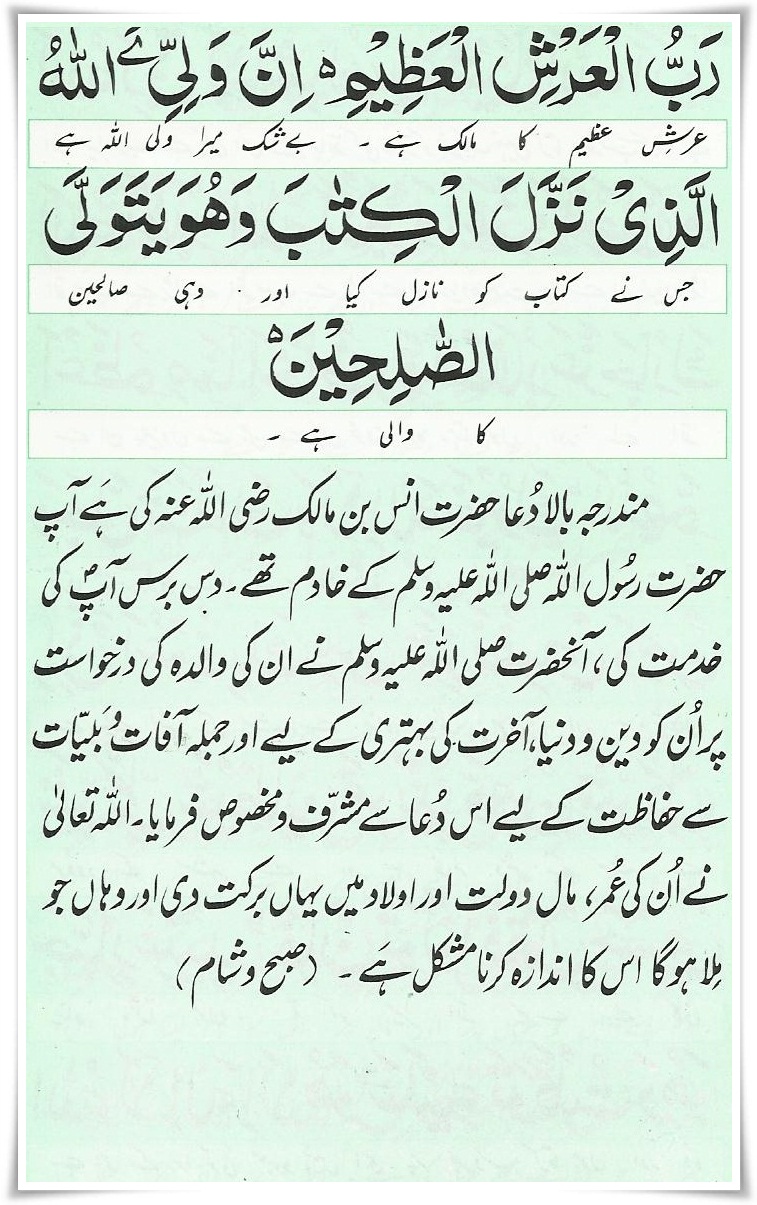 رَبُّ الْعَرْشِ الْعَظِيْمِ ۵ اِنَّ وَلِیِّ ےَ اللّٰهُ
عرشِ عظیم کا مالک ہے ۔ بے شک میرا ولی اللہ ہے
الَّذِیْ نَزَّلَ الْكِتٰبَ وَهُوَ يَتَوَلَّی
جس نے کتاب کو نازل کیا اور وہی صالحین
الصّٰلِحِيْنَ ۵
کا والی ہے ۔
مندرجہ بالا دُعا حضرت انس بن مالک رضی اللہ عنہ کی ہَے آپ
حضرت رسُول اللہ صلی اللہ علیہ وسلم کے خادم تھے۔ دس برس آپؐ کی
خدمت کی، آنحضرت صلی اللہ علیہ وسلم نے ان کی والدہ کی درخواست
پر اُن کو دین و دنیا، آخرت کی بہتری کے لیے اور جملہ آفات و بَلیّات
سے حفاظت کے لیے اس دُعا سے مشرّف و مخصوص فرمایا۔ اللہ تعالیٰ
نے اُن کی عُمر، مال دولت اور اولاد میں یہاں برکت دی اور وہاں جو
مِلا ہوگا اس کا اندازہ کرنا مشکل ہَے ۔ (صبح و شام)